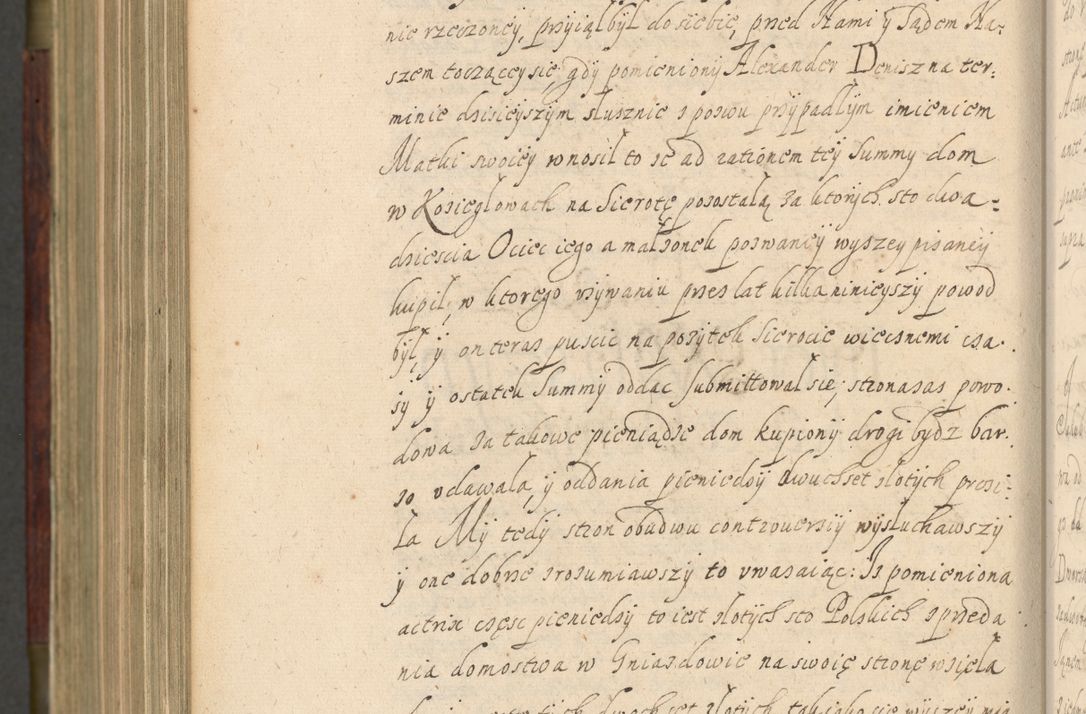 nie rzeczoney, przyiął był do siebie, przed Nami y Sądem Na-
szem toczącey się, gdy pomieniony Alexander Denisz na ter-
minie dzisieyszym słusznie z pozwu przypadłym imieniem
Matki swoiey wnosił to że ad rationem tey Summy dom
w Kozieglowach na Sierotę pozostałą za ktorych sto dwa-
dziescia Ociec iego a małżonek pozwaney wyszey pisaney
kupił, w ktorego vżywaniu przez lat kilka ninieyszy powod
był, y on teraz puscic na pożytek Sierocie wiecznemi cza-
sy y ostatek Summy oddac submittował się; strona zas powo-
dowa za takowe pieniądze dom kupiony drogi bydz bar-
zo vdawała, y oddania pieniedzy dwuchset złotych prosi-
ła My tedy stron obudwu controuersiy wysłuchawszy
y one dobrze zrozumiawszy to vwazaiąc: Iz pomieniona
actrix częsc pieniedzy to iest złotych sto Polskich z przeda
nia domostwa w Gniazdowie na swoię stronę wzięła